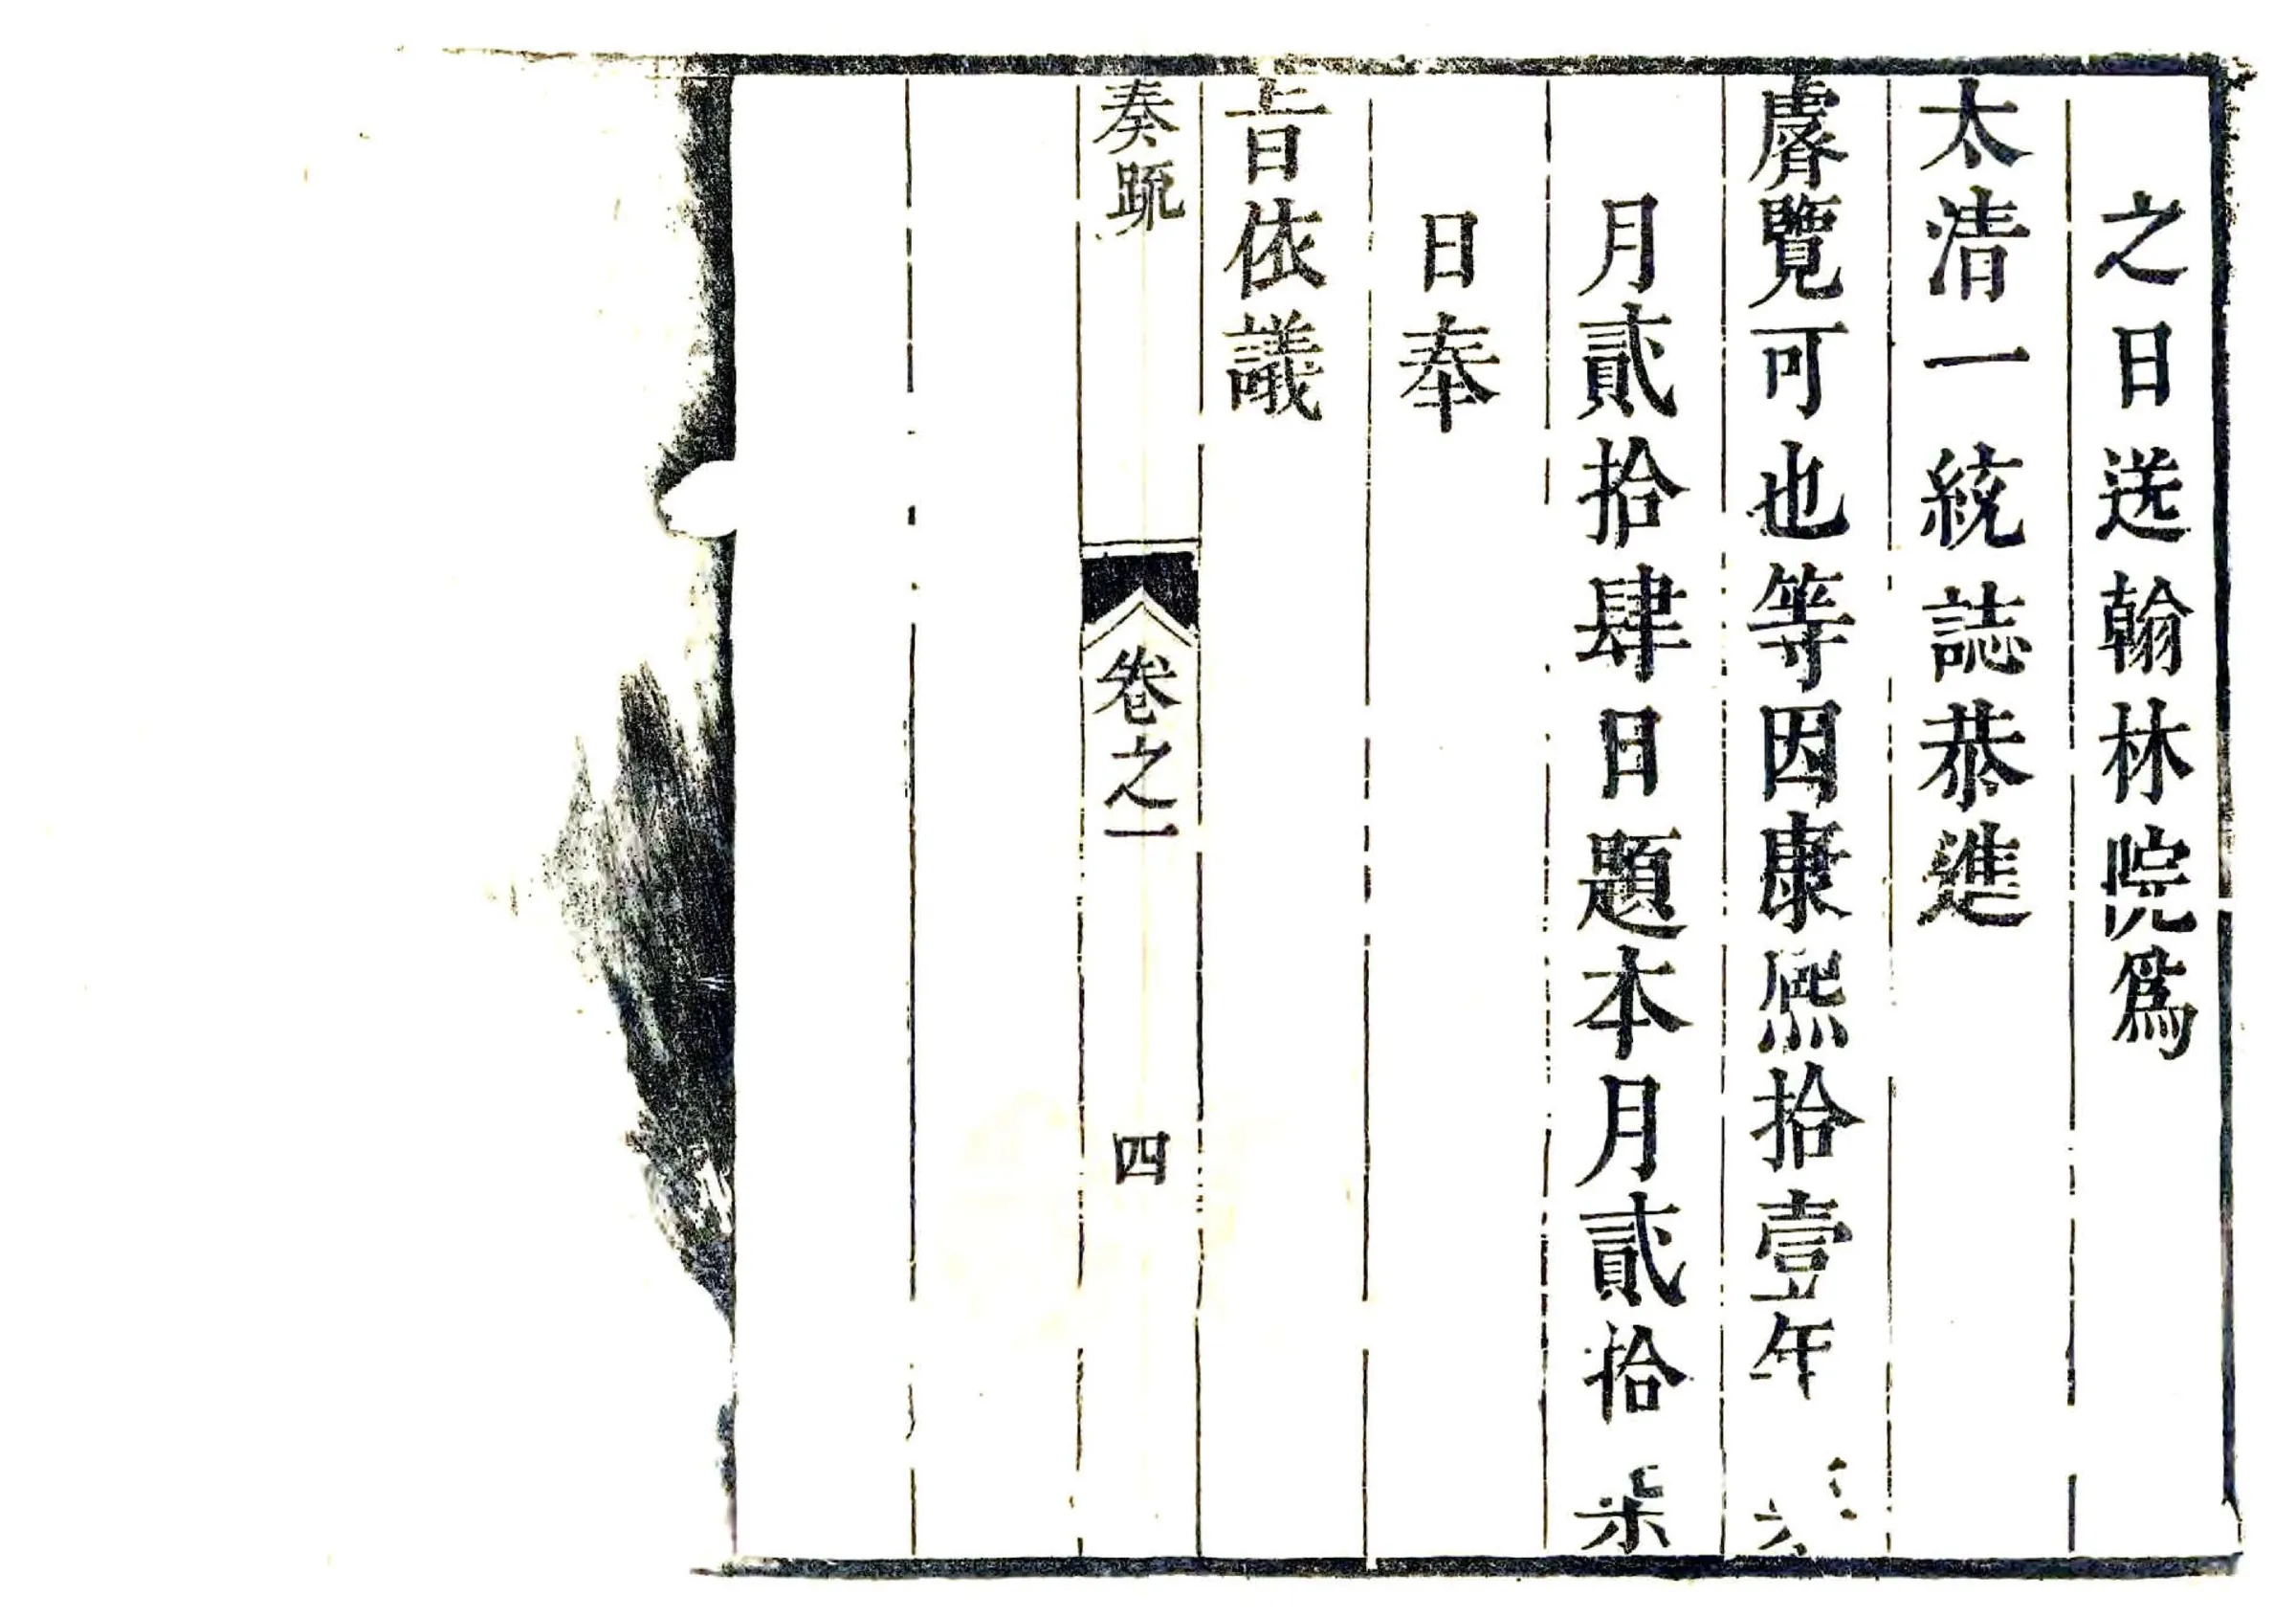 之日送翰林院爲
太清一統誌恭進
睿覽可也等因康熙拾壹年
月貳拾肆日題本月貳拾柒
日奉
旨依議
奏疏
卷之一
四